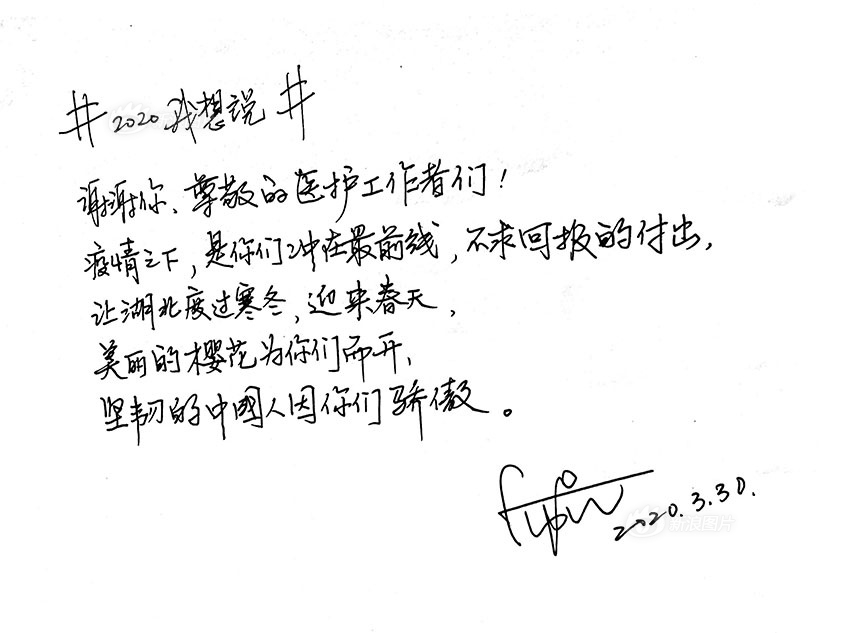 #2020我想说#
谢谢你、尊敬的医护工作者们！
疫情之下，是你们冲在最前线，不求回报的付出，
让湖北度过寒冬，迎来春天，
美丽的樱花为你们而开，
坚韧的中國人因你们骄傲。
2020.3.30.
新浪图片